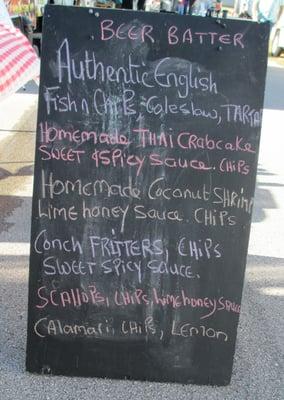 BEER BATTER
Authentic English
Fish n Chips. Coleslaw, TARTA
Homemade THAI Crabcake
SWEET & SPICY SAUCE. CHIPS
Homemade Coconut SHRIMP
Lime honey Sauce. CHIPS
Conch FRITTERS, CHIPS
SWEET SPICY SAUCE.
SCALLOPS, CHIPS, Lime honey SAUCE
Calamari, CHIPS, Lemon